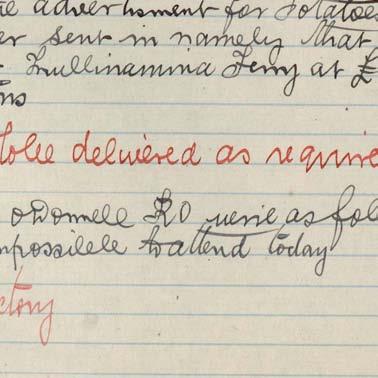 e advertisment for potatoes
er sent in namely that
Mullinamina Ferry at £
ns
to be delivered as require
O'Donnell RO were as fol
mpossilele to attend today
ctory